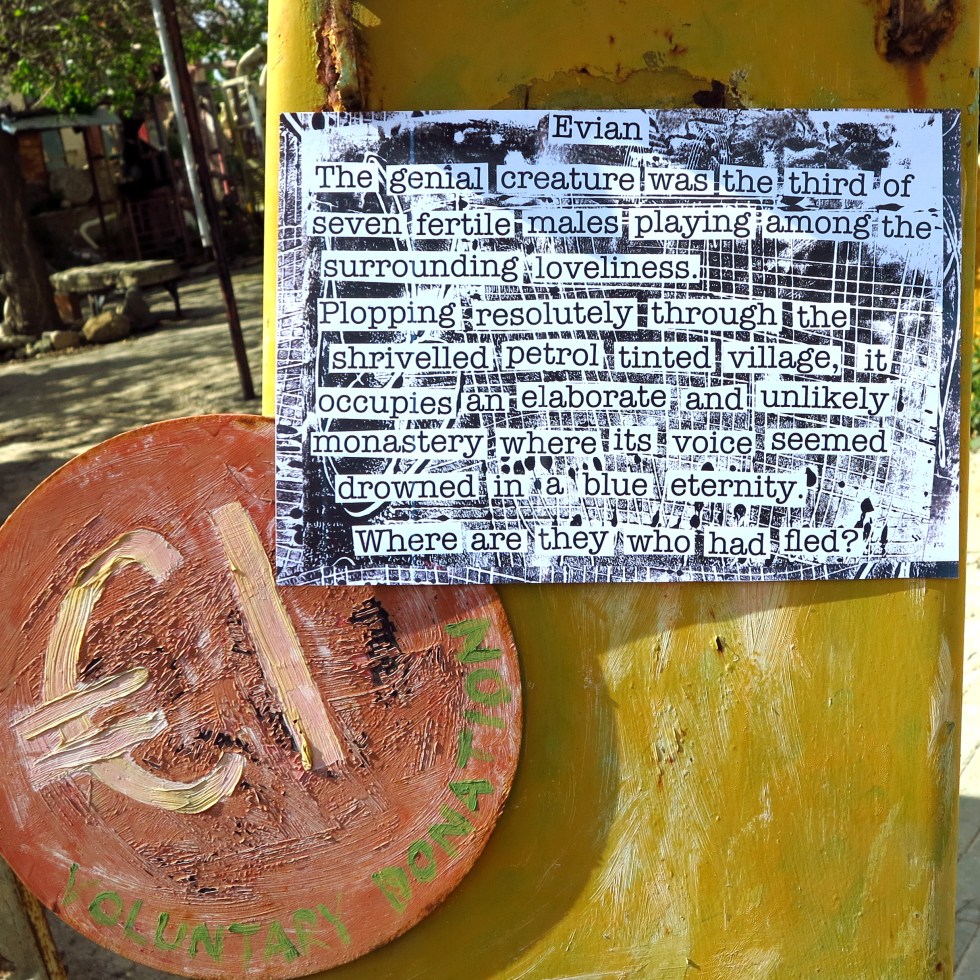 Evian
The genial creature was the third of
seven fertile males playing among the
surrounding loveliness.
Plopping resolutely through the
shrivelled petrol tinted village, it
occupies an elaborate and unlikely
monastery where its voice seemed
drowned in a blue eternity.
Where are they who had fled?
€1
VOLUNTARY DONATION